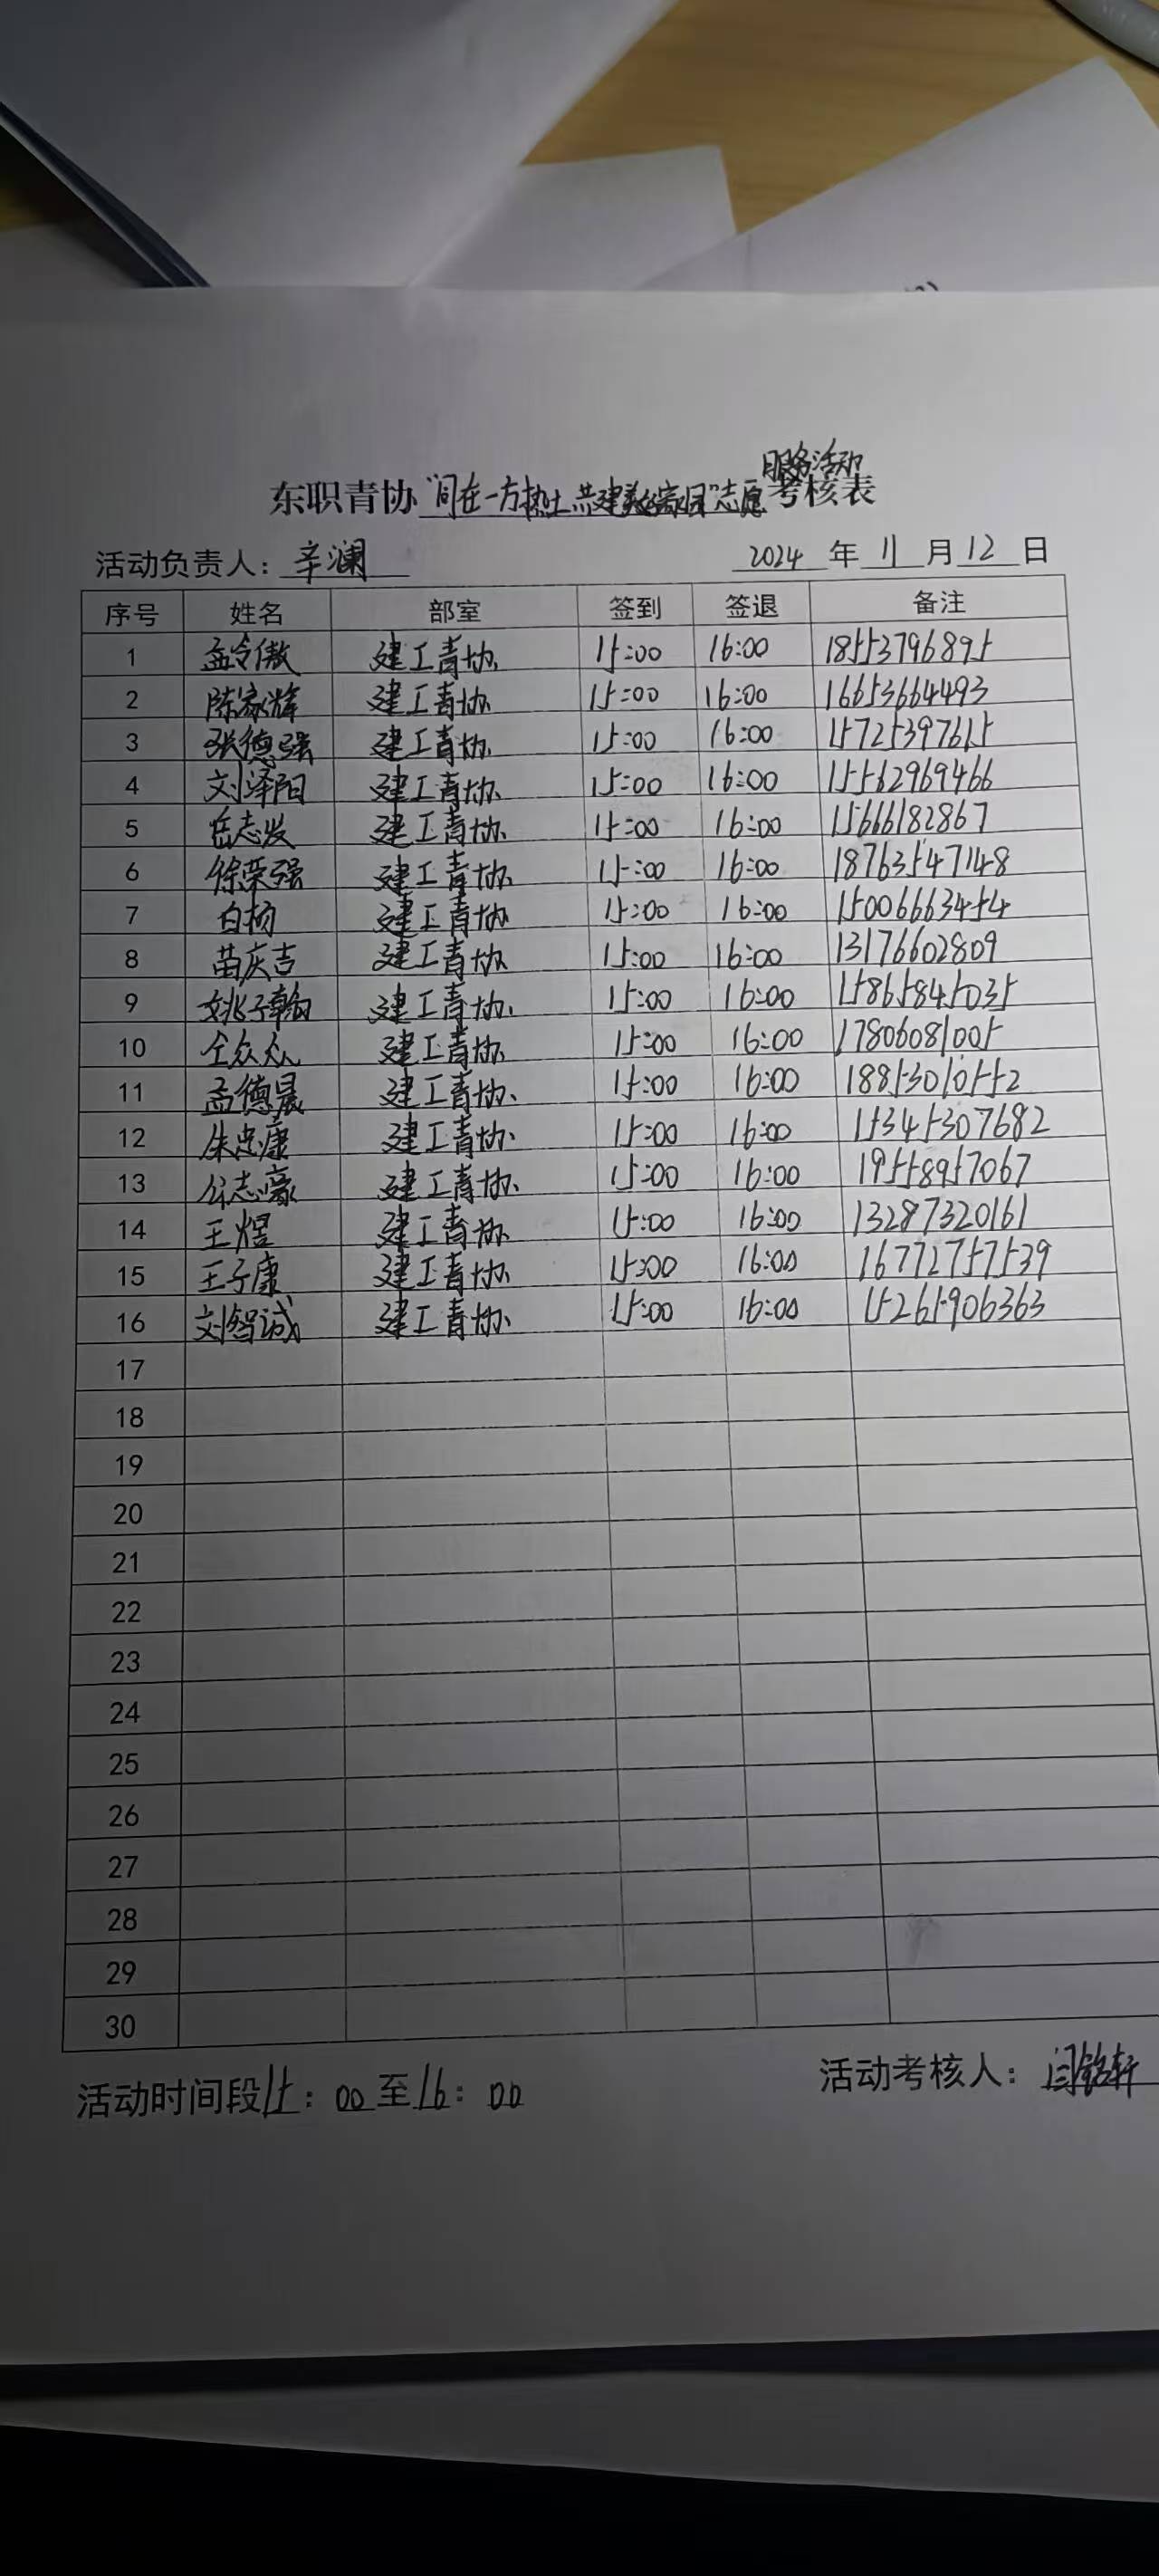 服务活动
东职青协“同在一方热土 共建美好家园”志愿考核表
活动负责人：辛澜 2024 年 11 月 12 日
序号 姓名 部室 签到 签退 备注
1 孟令傲 建工青协 15:00 16:00 18553796895
2 陈家辉 建工青协 15:00 16:00 16653664493
3 张德强 建工青协 15:00 16:00 15725397615
4 刘泽阳 建工青协 15:00 16:00 15562969466
5 岳志发 建工青协 15:00 16:00 15666182867
6 徐荣强 建工青协 15:00 16:00 18763547148
7 白杨 建工青协 15:00 16:00 15006663454
8 苗庆吉 建工青协 15:00 16:00 13176602809
9 姚子翰 建工青协 15:00 16:00 15865845035
10 仝众众 建工青协 15:00 16:00 17806081005
11 孟德晨 建工青协 15:00 16:00 18853010552
12 朱忠康 建工青协 15:00 16:00 15345307682
13 公志豪 建工青协 15:00 16:00 19558957067
14 王煜 建工青协 15:00 16:00 13287320161
15 王子康 建工青协 15:00 16:00 16772757539
16 刘智诚 建工青协 15:00 16:00 15265906363
17
18
19
20
21
22
23
24
25
26
27
28
29
30
活动时间段 15：00 至 16：00 活动考核人：闫铭轩